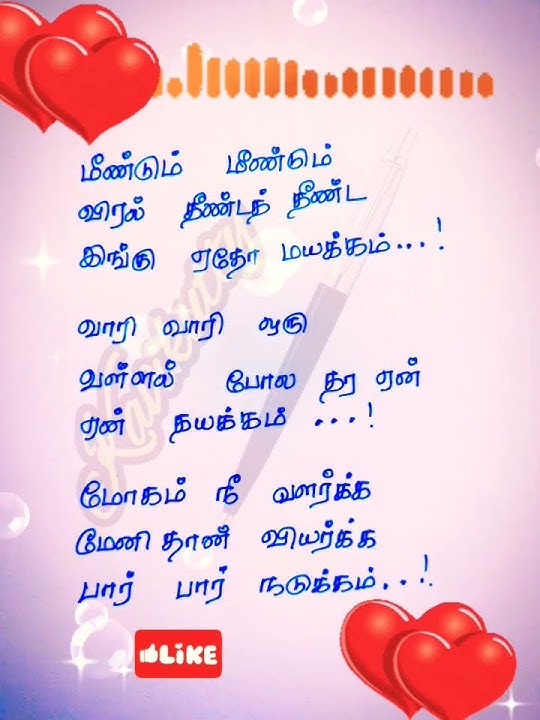 மீண்டும் மீண்டும்
விரல் தீண்டத் தீண்ட
இங்கு ஏதோ மயக்கம்...!
வாரி வாரி ஒரு
வள்ளல் போல தர ஏன்
ஏன் தயக்கம் ...!
மோகம் நீ வளர்க்க
மேனி தான் வியர்க்க
பார் பார் நடுக்கம்...!
LIKE